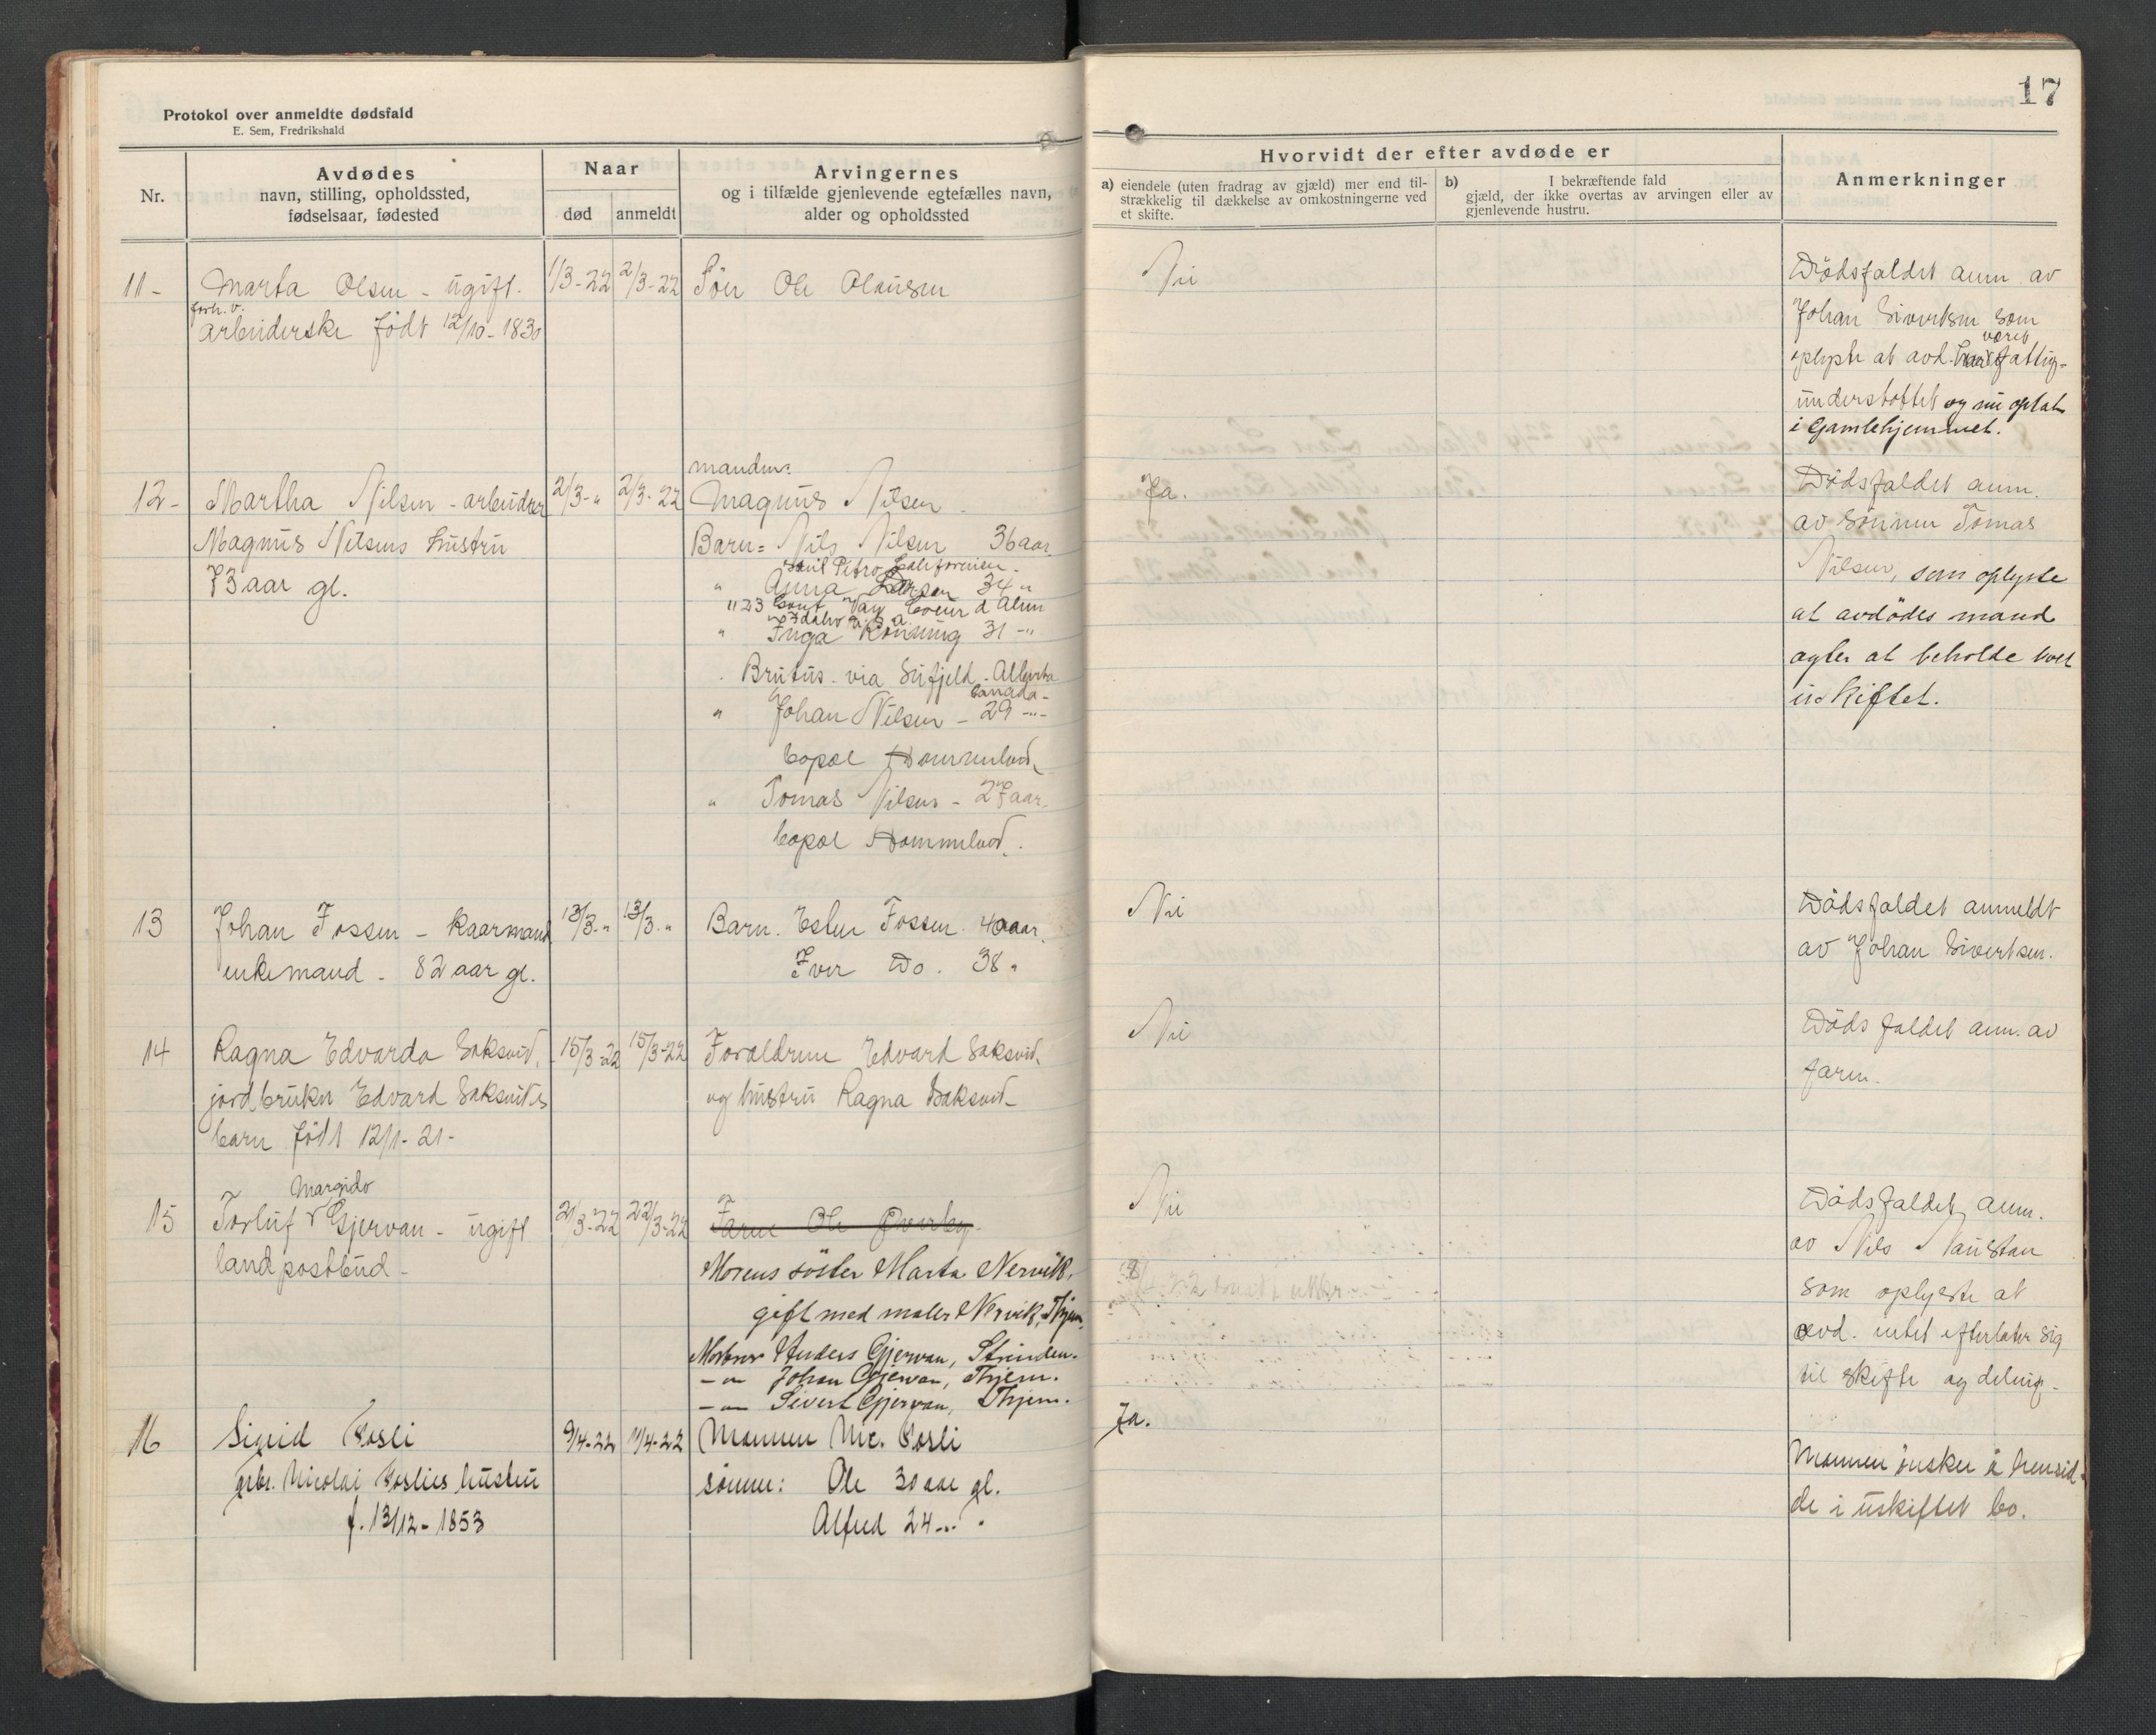 Protokol over anmeldte dødsfald
E. Sem, Fredrikshald
Nr.
Avdødes
navn, stilling, opholdssted,
fødselsaar, fødested
Naar
død
anmeldt
Arvingernes
og i tilfælde gjenlevende egtefælles navn,
alder og opholdssted
11 -
Marta Olsen - ugift.
forh. v.
arbeiderske født 12/10 - 1830
1/3-22
2/3-22
Søn Ole Olausen
12 -
Martha Nilsen - arbeider
Magnus Nilsens hustru
73 aar gl.
2/3- "
2/3- 22
manden:
Magnus Nilsen -
Barn = Nils Nilsen 36 aar
Petro Californien.
" Anna Larsen 34 "
1123 Way Coeur d Alen
Idaho U.S.A.
" Inga Rönning 31 -"-
Brutus - via - Alberta
Canada -
" Johan Nilsen - 29 -"-
bopæl Hommelvik
" Tomas Nilsen - 27 aar.
bopæl Hommelvik.
13
Johan Fossen - kaarmand
enkemand - 82 aar gl.
13/3. "
13/3. "
Barn. Esten Fossen 40 aar.
Iver Do. 38 "
14
Ragna Edvarda Saksvik,
jordbruker Edvard Saksviks
barn født 12/1 - 21 -
15/3-22
15/3-22
Forældrene Edvard Saksvik
og hustru Ragna Saksvik
15
Margido
Torleif Gjervan - ugift
landpostbud -
21/3-22
22/3-22
Faren Ole Øverby.
Morens søster Marta Nervik,
gift med maler Nervik, Thjem.
Morbror Anders Gjervan, Strinden.
-"- Johan Gjervan, Thjem.
-"- Sivert Gjervan, Thjem.
16
Sigrid Rosli
grbr. Nicolai Roslies hustru
f. 13/12 - 1853
9/4-22
11/4-22
Mannen Nic. Rosli
sønner: Ole 30 aar gl.
Alfred 24 -"- "
17
Hvorvidt der efter avdøde er
a) eiendele (uten fradrag av gjæld) mer end til-
strækkelig til dækkelse av omkostningerne ved
et skifte.
b) I bekræftende fald
gjæld, der ikke overtas av arvingen eller av
gjenlevende hustru.
Anmerkninger
Nei
Dødsfaldet anm. av
Johan Sivertsen som
oplyste at avd. har været fattig-
understøttet og nu optat
i Gamlehjemmet.
Ja.
Dødsfaldet anm.
av sønnen Tomas
Nilsen, som oplyste
at avdødes mand
agter at beholde boet
uskiftet.
Nei
Dødsfaldet anmeldt
av Johan Sivertsen.
Nei
Dødsfaldet anm. av
faren.
Nei
Dødsfaldet anm.
av Nils Naustan
som oplyste at
avd. intet efterlater sig
til skifte og deling.
Ja.
Mannen ønsker å hensid-
de i uskiftet bo.